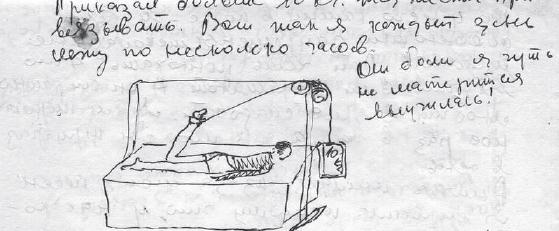 Приказал больше 10 кг. при
вязывать. Вот так я каждый день
лежу по несколко часов.
От боли я чуть
не матерится
выучилась!
10
кг